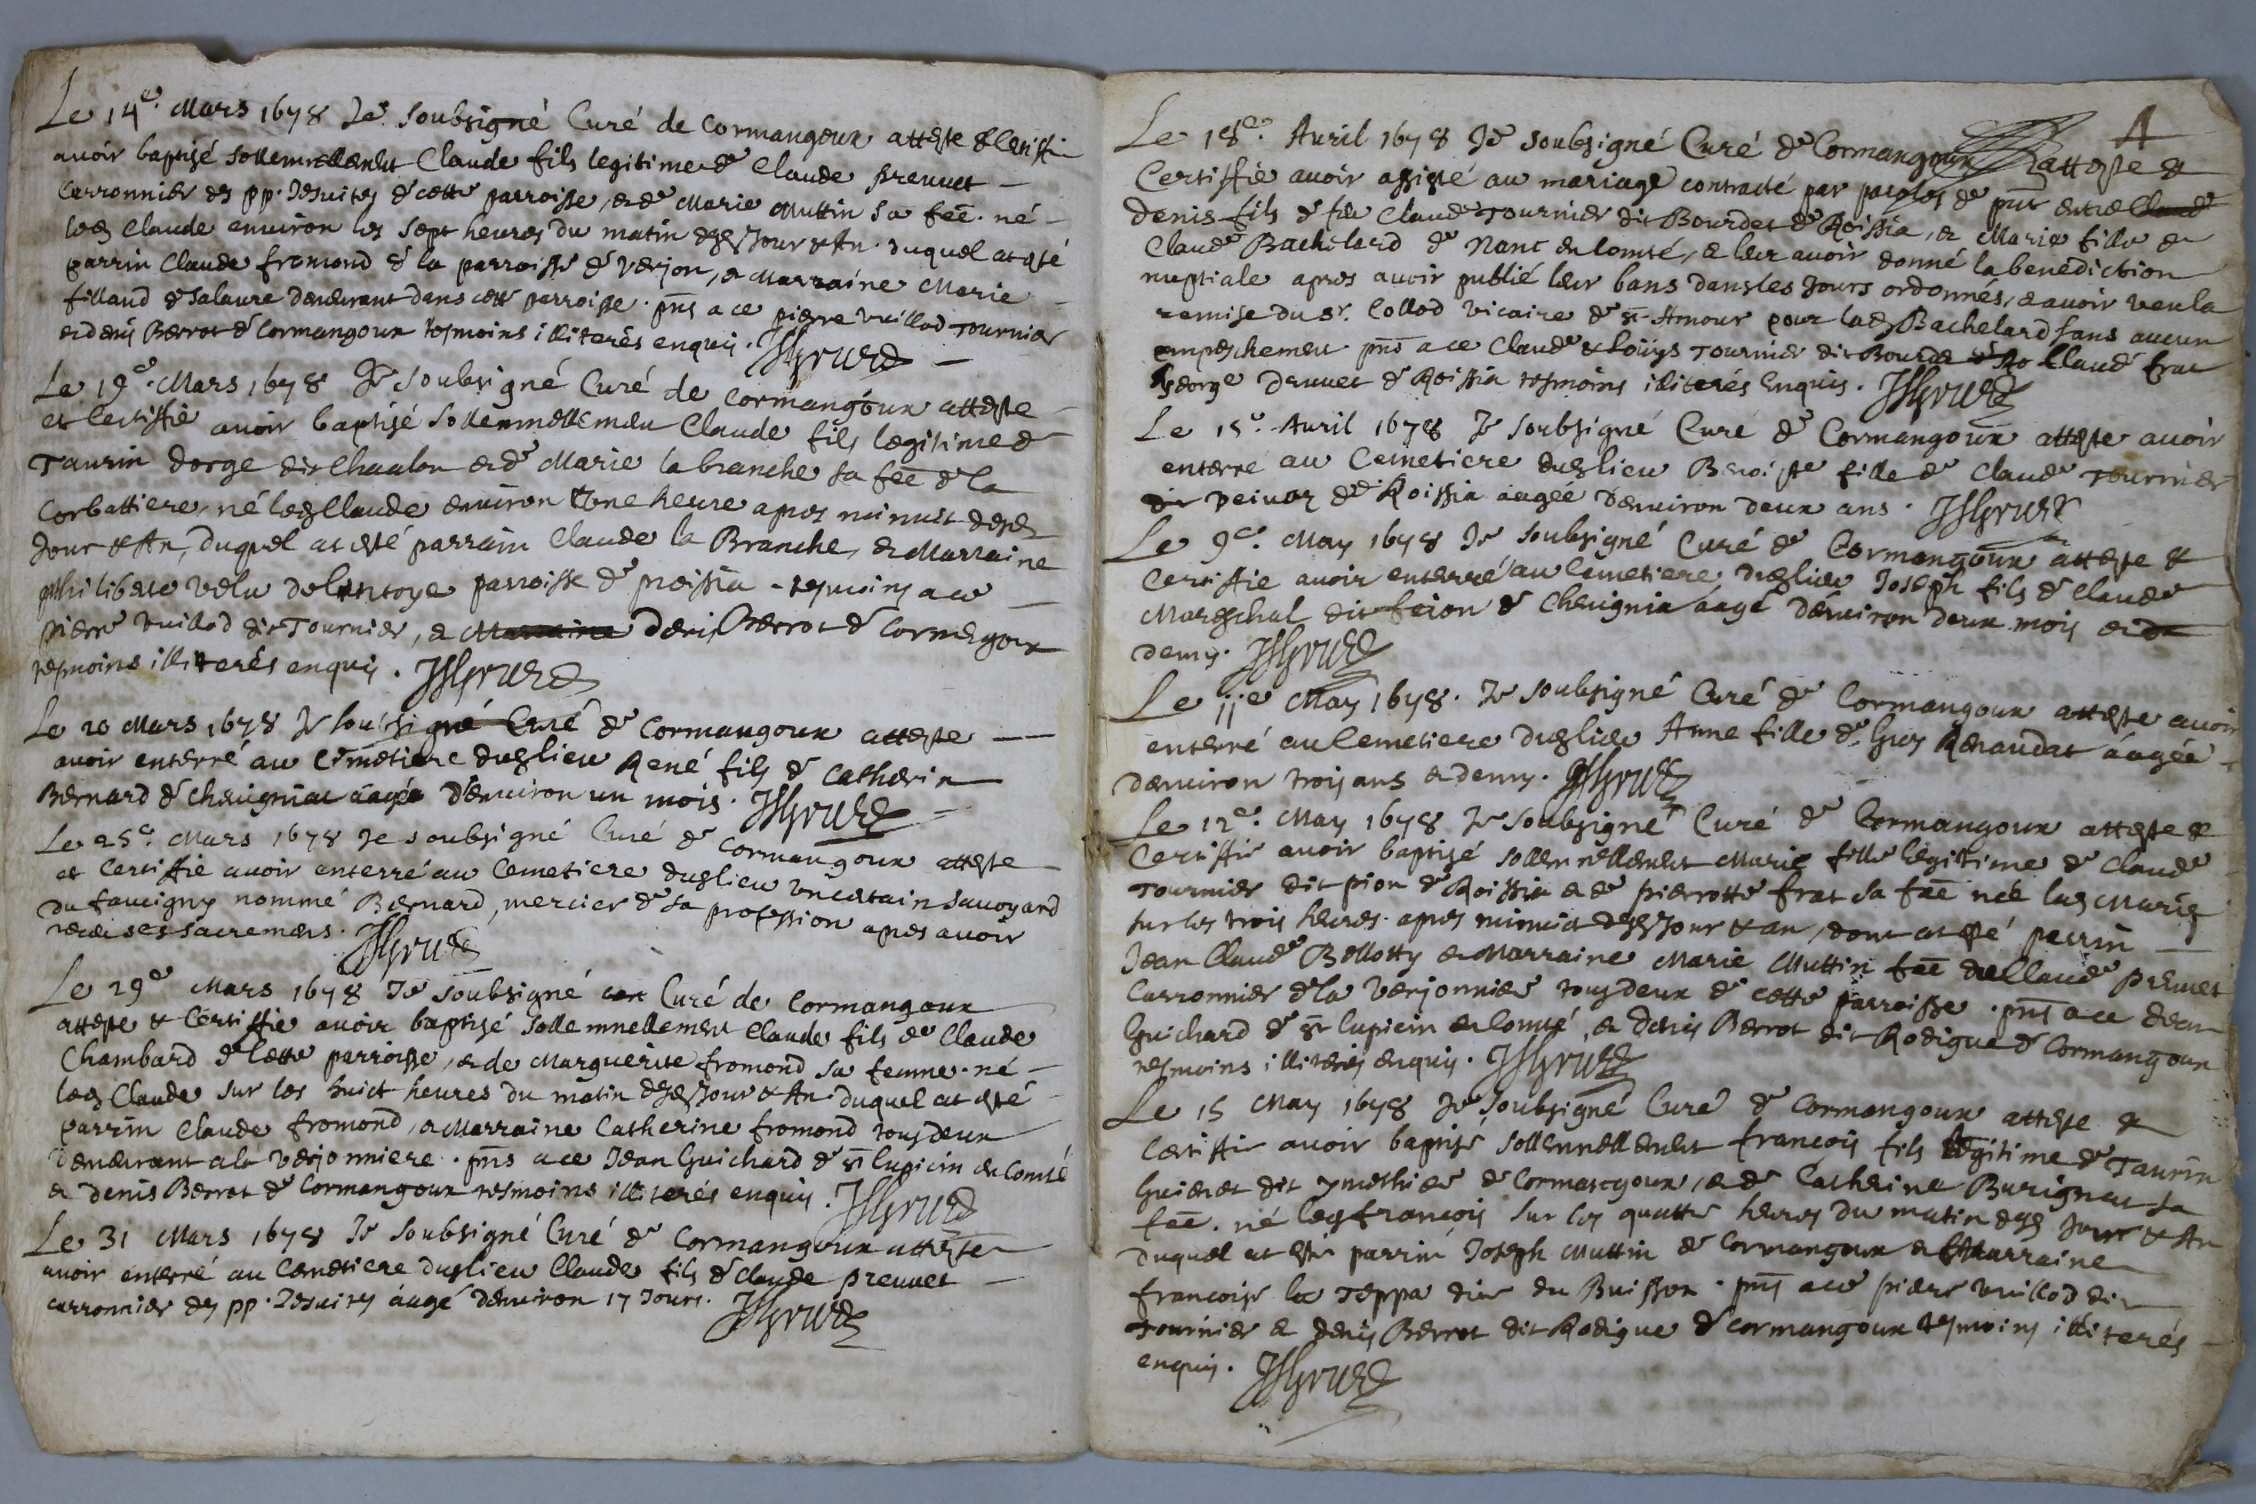 Le 14e. Mars 1678 Je soubsigné Curé de Cormangoux atteste & Certiffie
avoir baptisé sollemnellement Claude fils legitime de Claude preuuet
Carronnier des pp. Jesuites de cette parroisse, & de Marie Muttin sa feē. né
led Claude environ les sept heures du matin desd Jour & An. duquel at esté
parrin Claude fromond de la parroisse de Verjon, & Marraine Marie
filland de Salaure demeurant dans cette parroisse. pnts a ce pierre vuillod Tournier
et denis Berrot de Cormangoux tesmoins illiterés enquis. JSGruet
Le 19e. Mars 1678 Je soubsigné Curé de Cormangoux atteste
et Certiffie avoir baptisé sollemnellement Claude fils legitime de
Taurin dorge dit Chaalon et de Marie la branche sa feē de la
Corbattiere, né led Claude environ Une heure apres minuict desd
Jour & An, duquel at esté parrain Claude la Branche, et Marraine
philiberte velu de parroisse de pressia - tesmoins a ce
pierre Vuillod dit Tournier, & Marraine denis Berrot de Cormangoux
tesmoins illiterés enquis. JSGruet
Le 20 Mars 1678 Je soubsigné Curé de Cormangoux atteste
avoir enterré au Cemetiere dudlieu René fils de Catherin
Bernard de Cheuigniat áagé d'environ un mois. JSGruet
Le 25e. Mars 1678 Je soubsigné Curé de Cormangoux atteste
et Certiffie avoir enterré au Cemetiere dudlieu Un certain Savoyard
du faucigny nommé Bernard, mercier de sa profession apres avoir
receu ses sacremens. JSGruet
Le 29e Mars 1678 Je soubsigné Curé de Cormangoux
atteste & Certiffie avoir baptisé sollemnellement Claude fils de Claude
Chambard de Cette parroisse, & de Marguerite fromond sa femme. né
led Claude sur les huict heures du matin desd Jour & An duquel at esté
parrin Claude fromond, & Marraine Catherine fromond tous deux
demeurant a la verjonniere. pnts a ce Jean Guichard de st lupicin en Comté
& Denis Berrot de Cormangoux tesmoins illiterés enquis. JSGruet
Le 31 Mars 1678 Je soubsigné Curé de Cormangoux atteste
avoir enterré au Cemetiere dudlieu Claude fils de Claude preuuet
carronnier des pp. Jesuites áagé d'environ 17 Jours. JSGruet
4
Le 18e. Auril 1678 Je soubsigné Curé de Cormangoux atteste &
Certiffie avoir assisté au mariage contracté par parolles de pnt entre Claude
Denis fils de feu Claude Tournier dit Bourdet de Roissia, & Marie fille de
Claude Bachelard de Nanc en Comté, & leur avoir donné la benediction
nuptiale apres avoir publié leur bans dans les Jours ordonnés, & avoir veu la
remise du sr. Collod vicaire de st Amour pour lad Bachelard sans aucun
empeschement pnts a ce Claude & Loüys Tournier dit Bourde Claude frat
George Druuet de Roissia tesmoins illiterés Enquis. JSGruet
Le 15e. Auril 1678 Je soubsigné Curé de Cormangoux atteste avoir
enterré au Cemetiere dudlieu Benoiste fille de Claude Tournier
dit de Roissia áagée d'environ deux ans. JSGruet
Le 9e. May 1678 Je soubsigné Curé de Cormangoux atteste &
Certiffie avoir enterré au Cemetiere dudlieu Joseph fils de Claude
Mareschal dit feion de Cheuignia áagé d'environ deux mois et
demy. JSGruet
Le 11e May 1678. Je soubsigné Curé de Cormangoux atteste avoir
enterré au Cemetiere dudlieu Anne fille de Guy Renaudat áagée
d'environ trois ans & demy. JSGruet
Le 12e. May 1678 Je soubsigné Curé de Cormangoux atteste &
Certiffie avoir baptisé sollemnellement Marie fille legitime de Claude
Tournier dit pion de Roissia & de pierrotte frat sa feē née lad Marie
sur les trois heures apres minuict desd Jour & an, dont at esté parrin
Jean Claude Bollotty & Marraine Marie Muttin feē de Claude preuuet
Carronnier de la Verjonniere tous deux de cette parroisse. pnts a ce Jean
Guichard de st lupicin en Comté, & denis Berrot dit Rodigue de Cormangoux
tesmoins illiterés enquis. JSGruet
Le 15 May 1678 Je soubsigné Curé de Cormangoux atteste &
Certiffie avoir baptisé sollemnellement francois fils legitime de Taurin
Guieret dit ymothier de Cormangoux, & de Catherine Burignat sa
feē. né led francois sur les quattre heures du matin desd Jour & An
duquel at esté parrin Joseph Muttin de Cormangoux & Marraine
francoise la Teppa dite du Buisson. pnts a ce pierre vuillod dit
Tournier & denis Berrot dit Rodigue de Cormangoux tesmoins illiterés
enquis. JSGruet